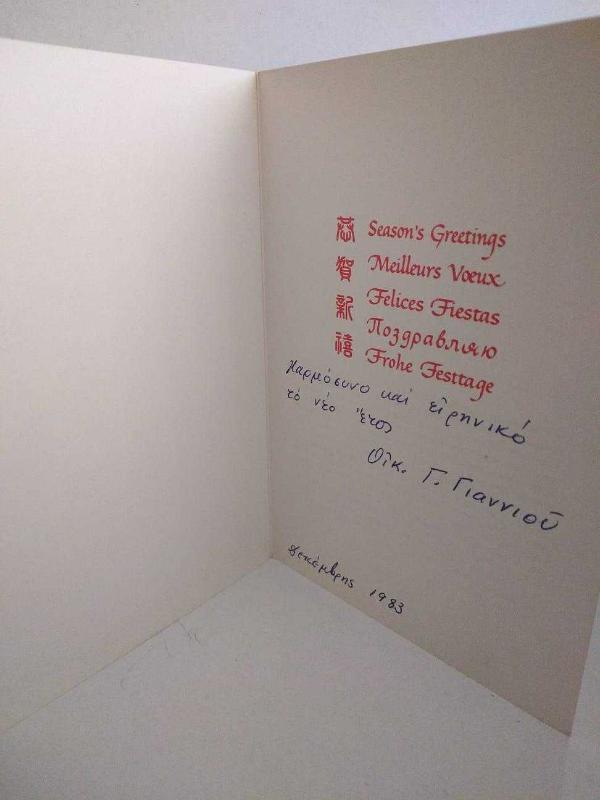 恭賀新禧
Season's Greetings
Meilleurs Vœux
Felices Fiestas
Поздравляю
Frohe Festtage
Χαρμόσυνο καί εἰρηνικό
τό νέο ἔτος
Οἰκ. Γ. Γιαννιοῦ
Δεκέμβρης 1983